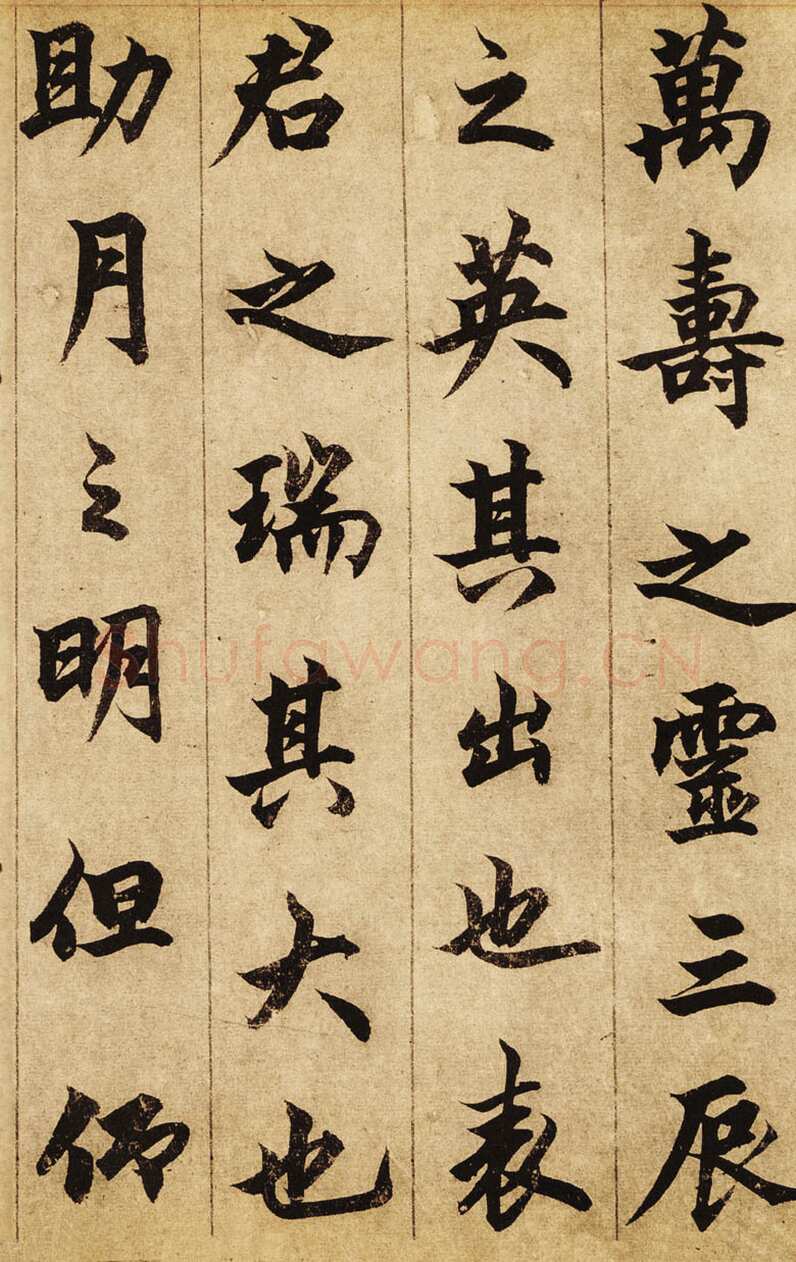 萬壽之靈三辰
之英其出也表
君之瑞其大也
助月之明但仰
Shufawang.CN